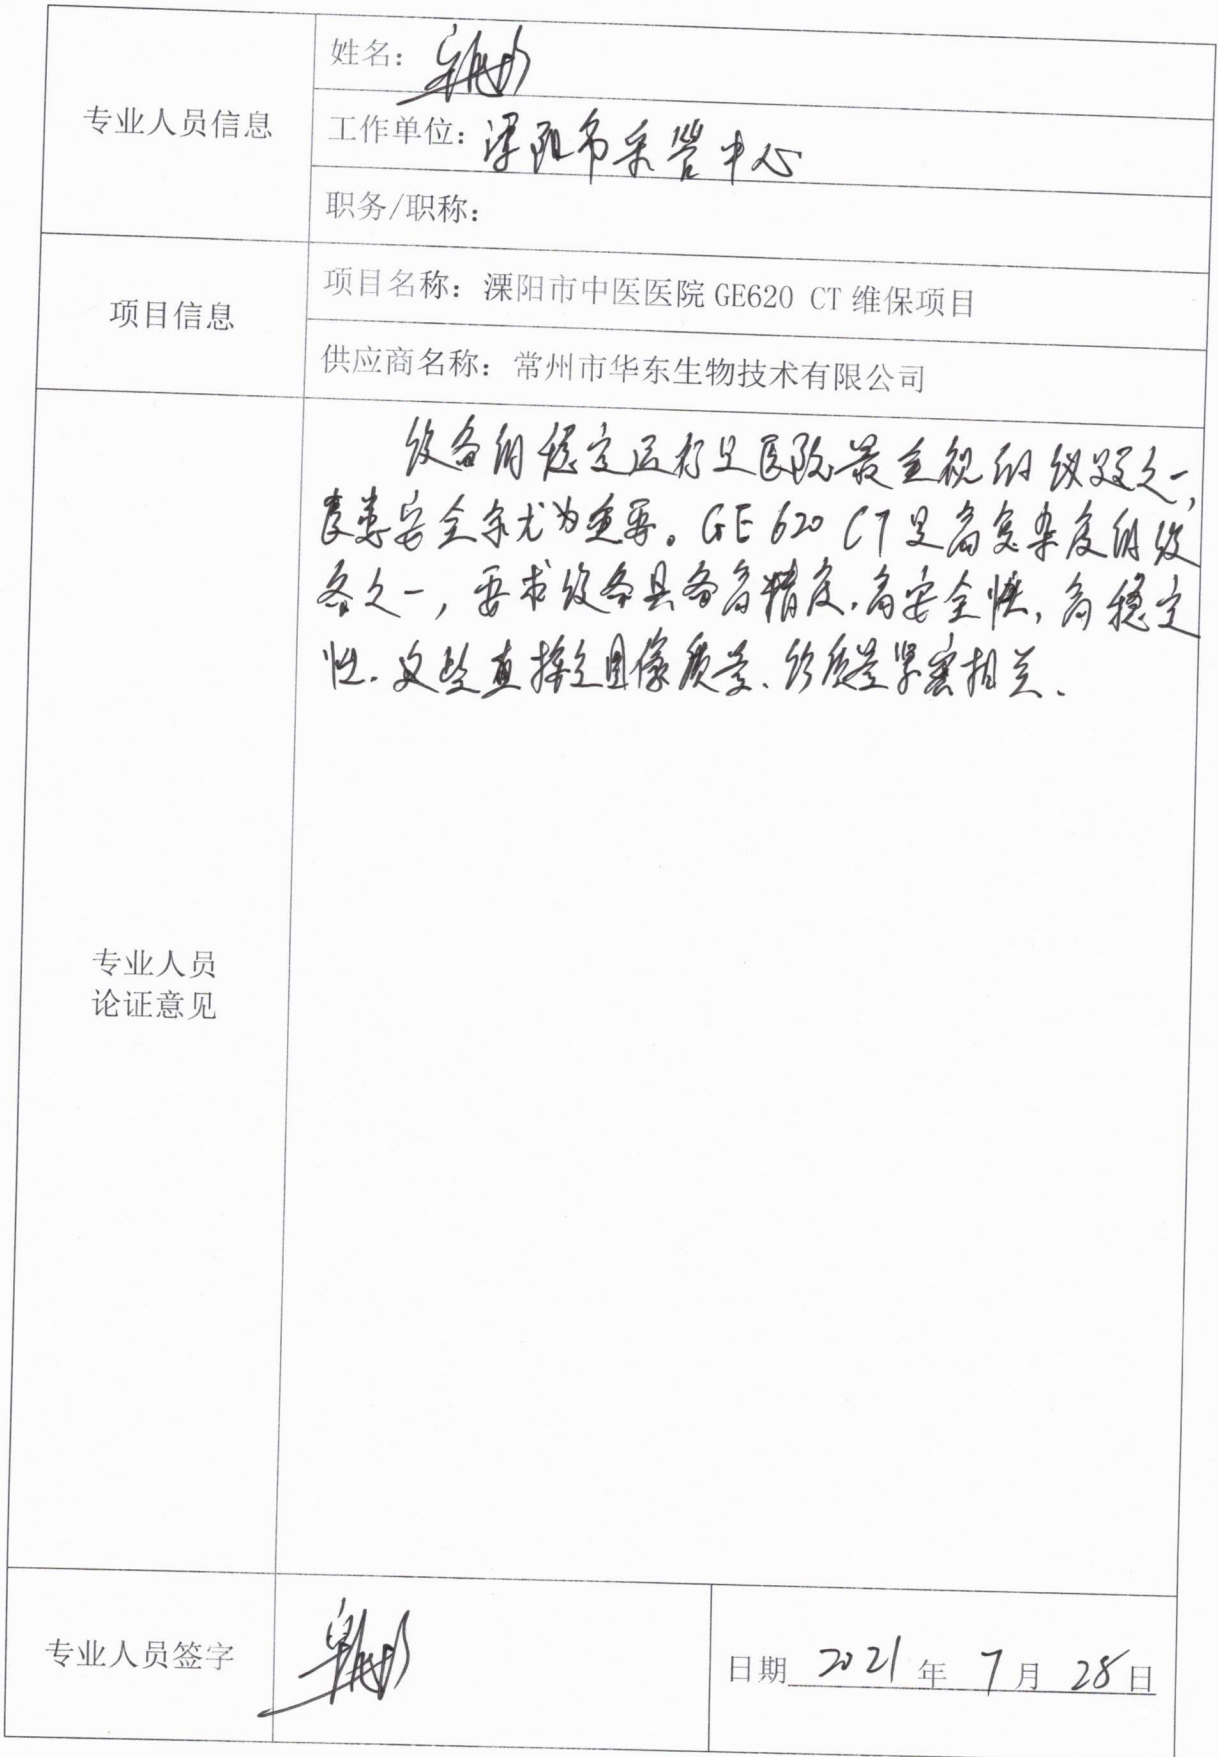 专业人员信息
姓名：
工作单位：溧阳市采管中心
职务/职称：
项目信息
项目名称：溧阳市中医医院 GE620 CT 维保项目
供应商名称：常州市华东生物技术有限公司
专业人员
论证意见
设备的稳定运行是医院最重视的议题之一，
患安全尤为重要。GE 620 CT 是高复杂度的设
备之一，要求设备具备高精度、高安全性、高稳定
性。这些直接与图像质量、质量紧密相关、
专业人员签字
日期 2021 年 7 月 28 日